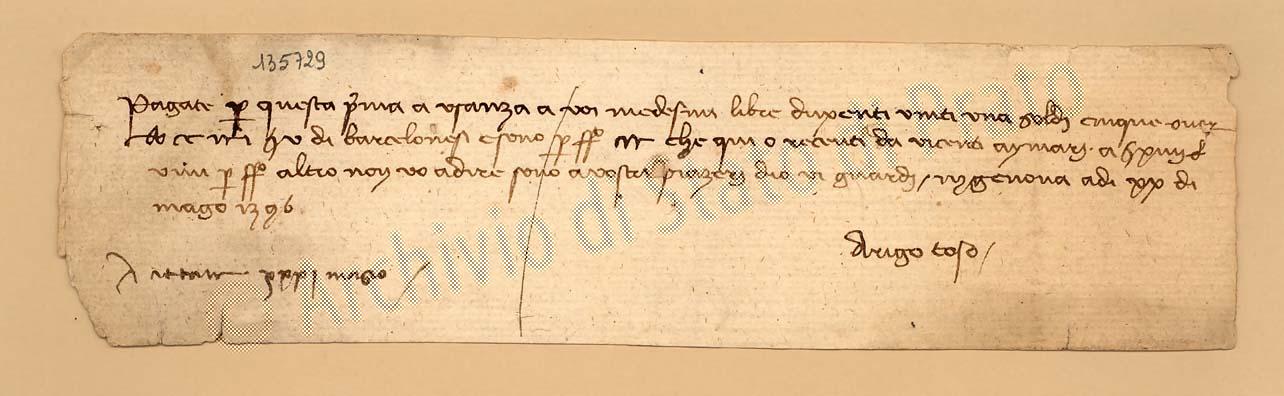 135729
Pagate per questa prima a usanza a voi medesimi libre duxenti vinti una soldi cinque over
di barcelonesi e sono per che qui o receuti da vicenti aymari a
per altro non vo a dire sono a vostri piazeri dio vi guardi / in genova a di xx di
mago 1396
Arigo toso /
A ittatti xxxi magio
© Archivio di Stato di Prato